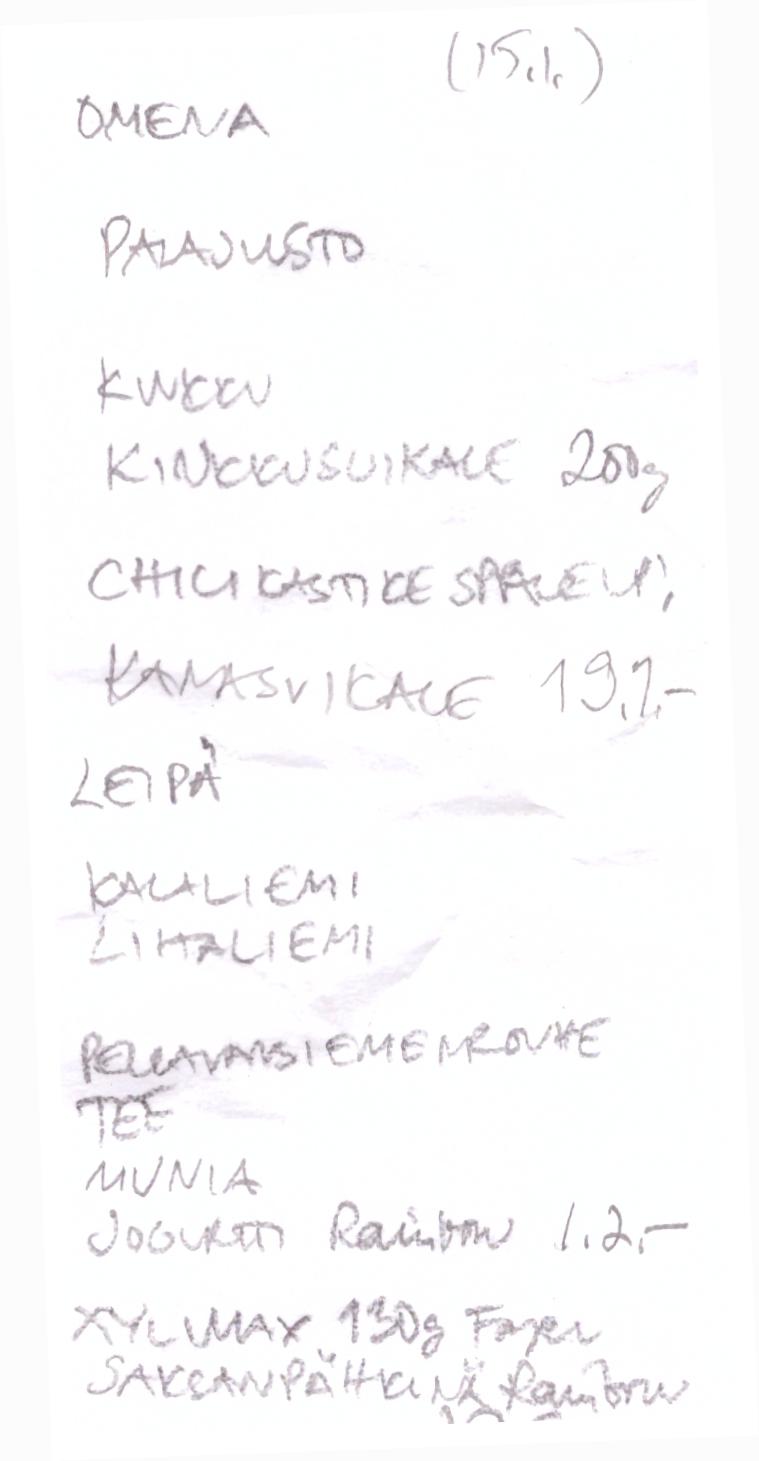 (15.1.)
OMENA
PALAJUUSTO
KINKKU
KINKKUSUIKALE 200g
CHILIKASTIKE
KANASUIKALE
LEIPÄ
KALALIEMI
LIHALIEMI
PELLAVANSIEMENROUHE
TEE
MUNIA
JOGURTTI Rainbow 1.2,-
XYLIMAX 130g Fazer
SAKSANPÄHKINÄ Rainbow